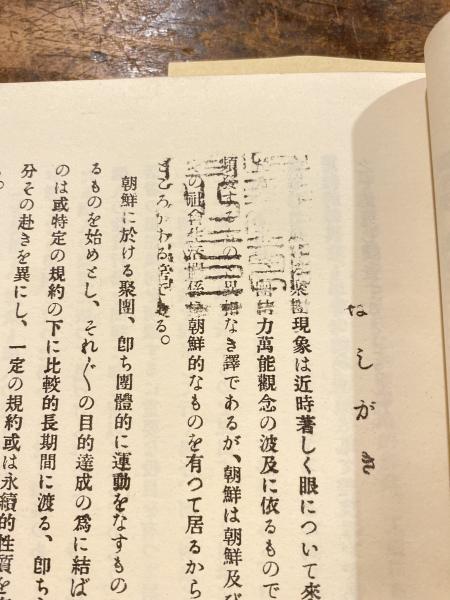 はしがき
聚團現象は近時著しく眼について來
團結力萬能觀念の波及に依るもので
異なき譯であるが、朝鮮は朝鮮及び
の社會生活關係に朝鮮的なものを有つて居るから
ころがある筈である。
朝鮮に於ける聚團、卽ち團體的に運動をなすもの
るものを始めとし、それ〴〵の目的達成の爲に結ば
のは或特定の規約の下に比較的長期間に渡る、卽ち
分その赴きを異にし、一定の規約或は永續的性質を
る。